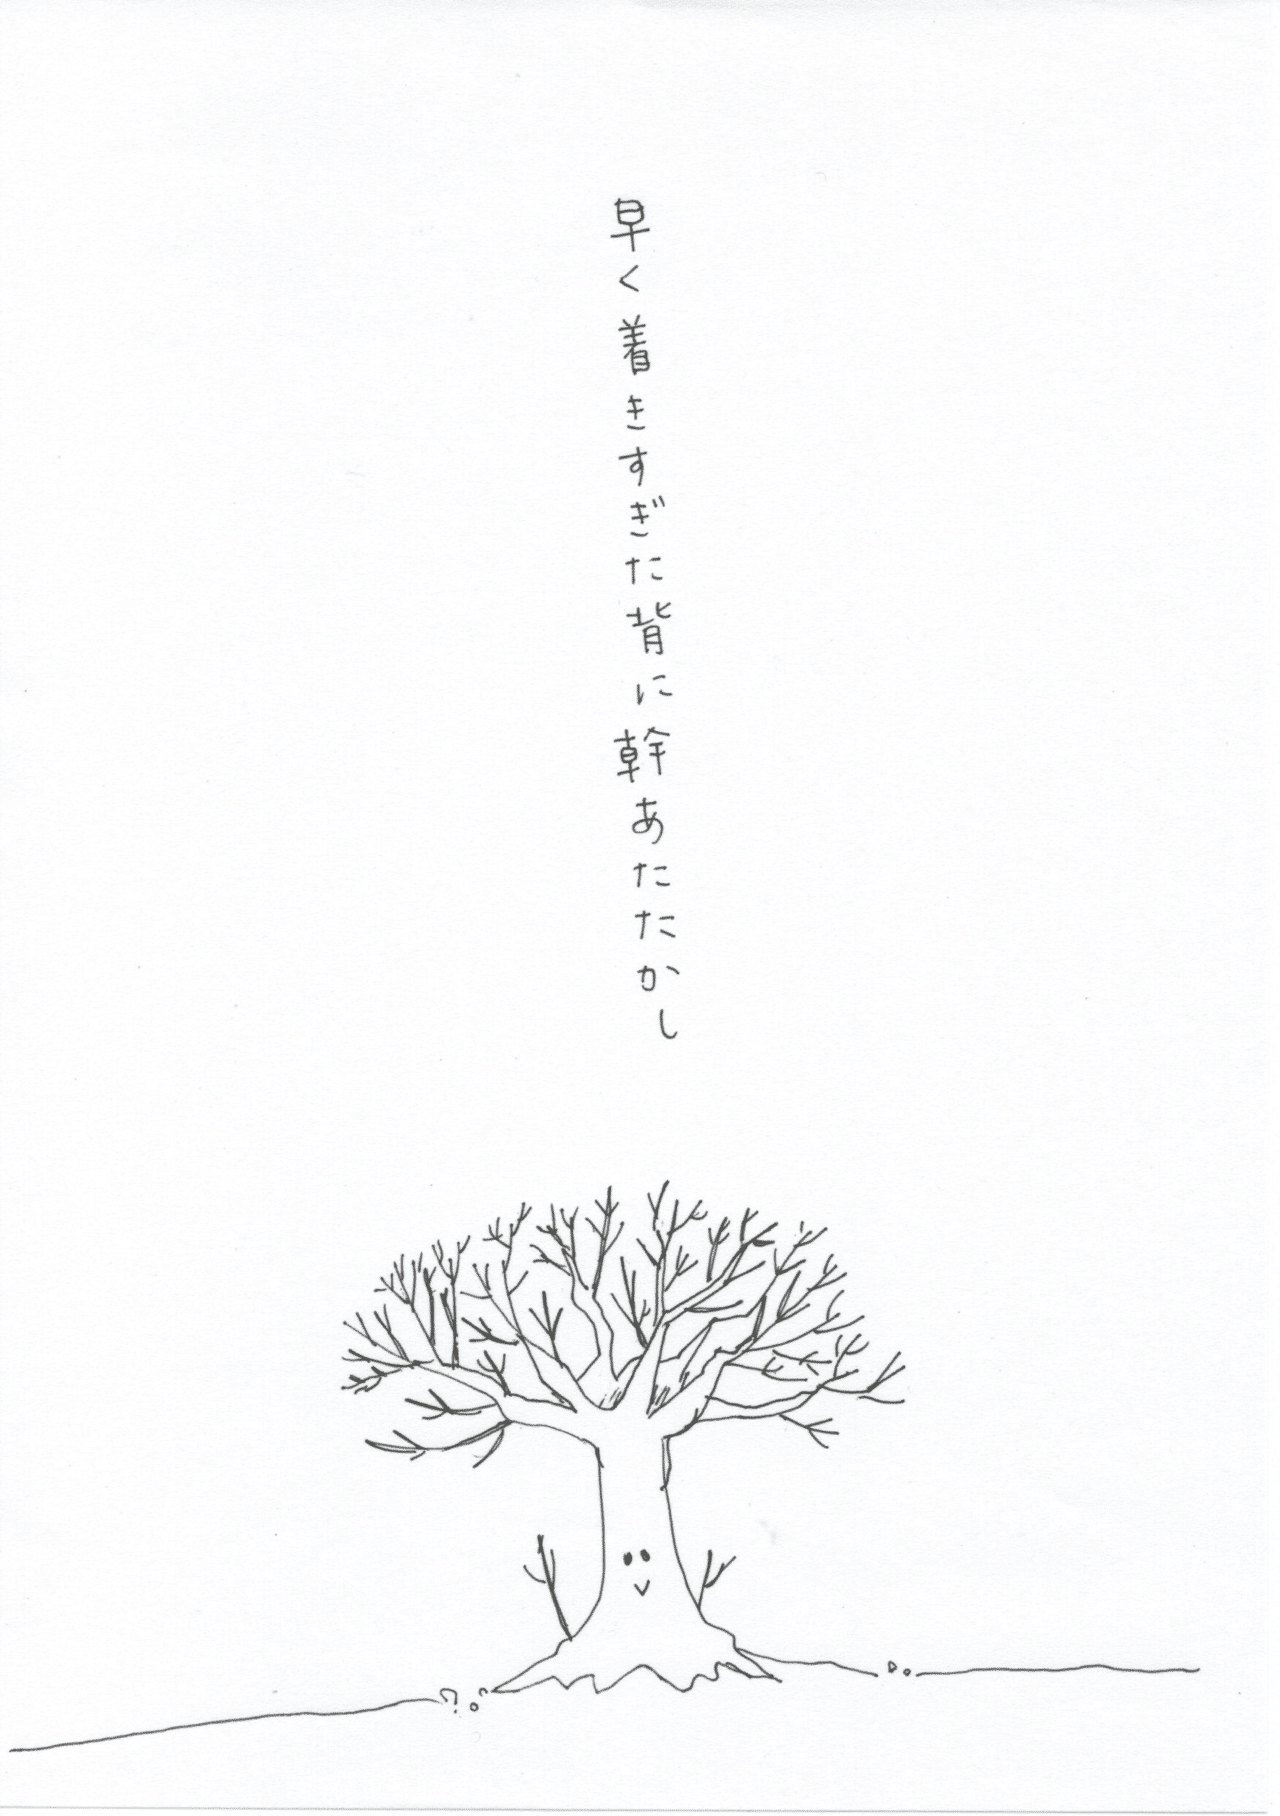 早く着きすぎた背に幹あたたかし